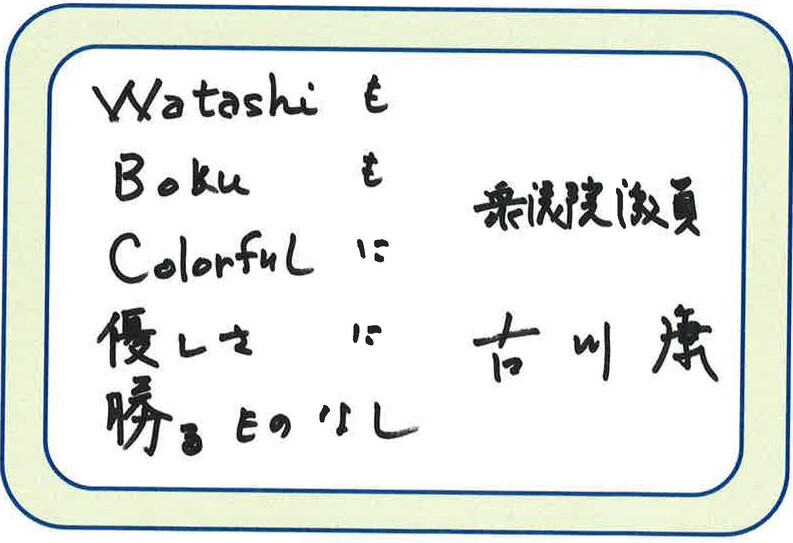 Watashi も
Boku も
Colorful に
優しさ に
勝るものなし
衆議院議員
古川 康